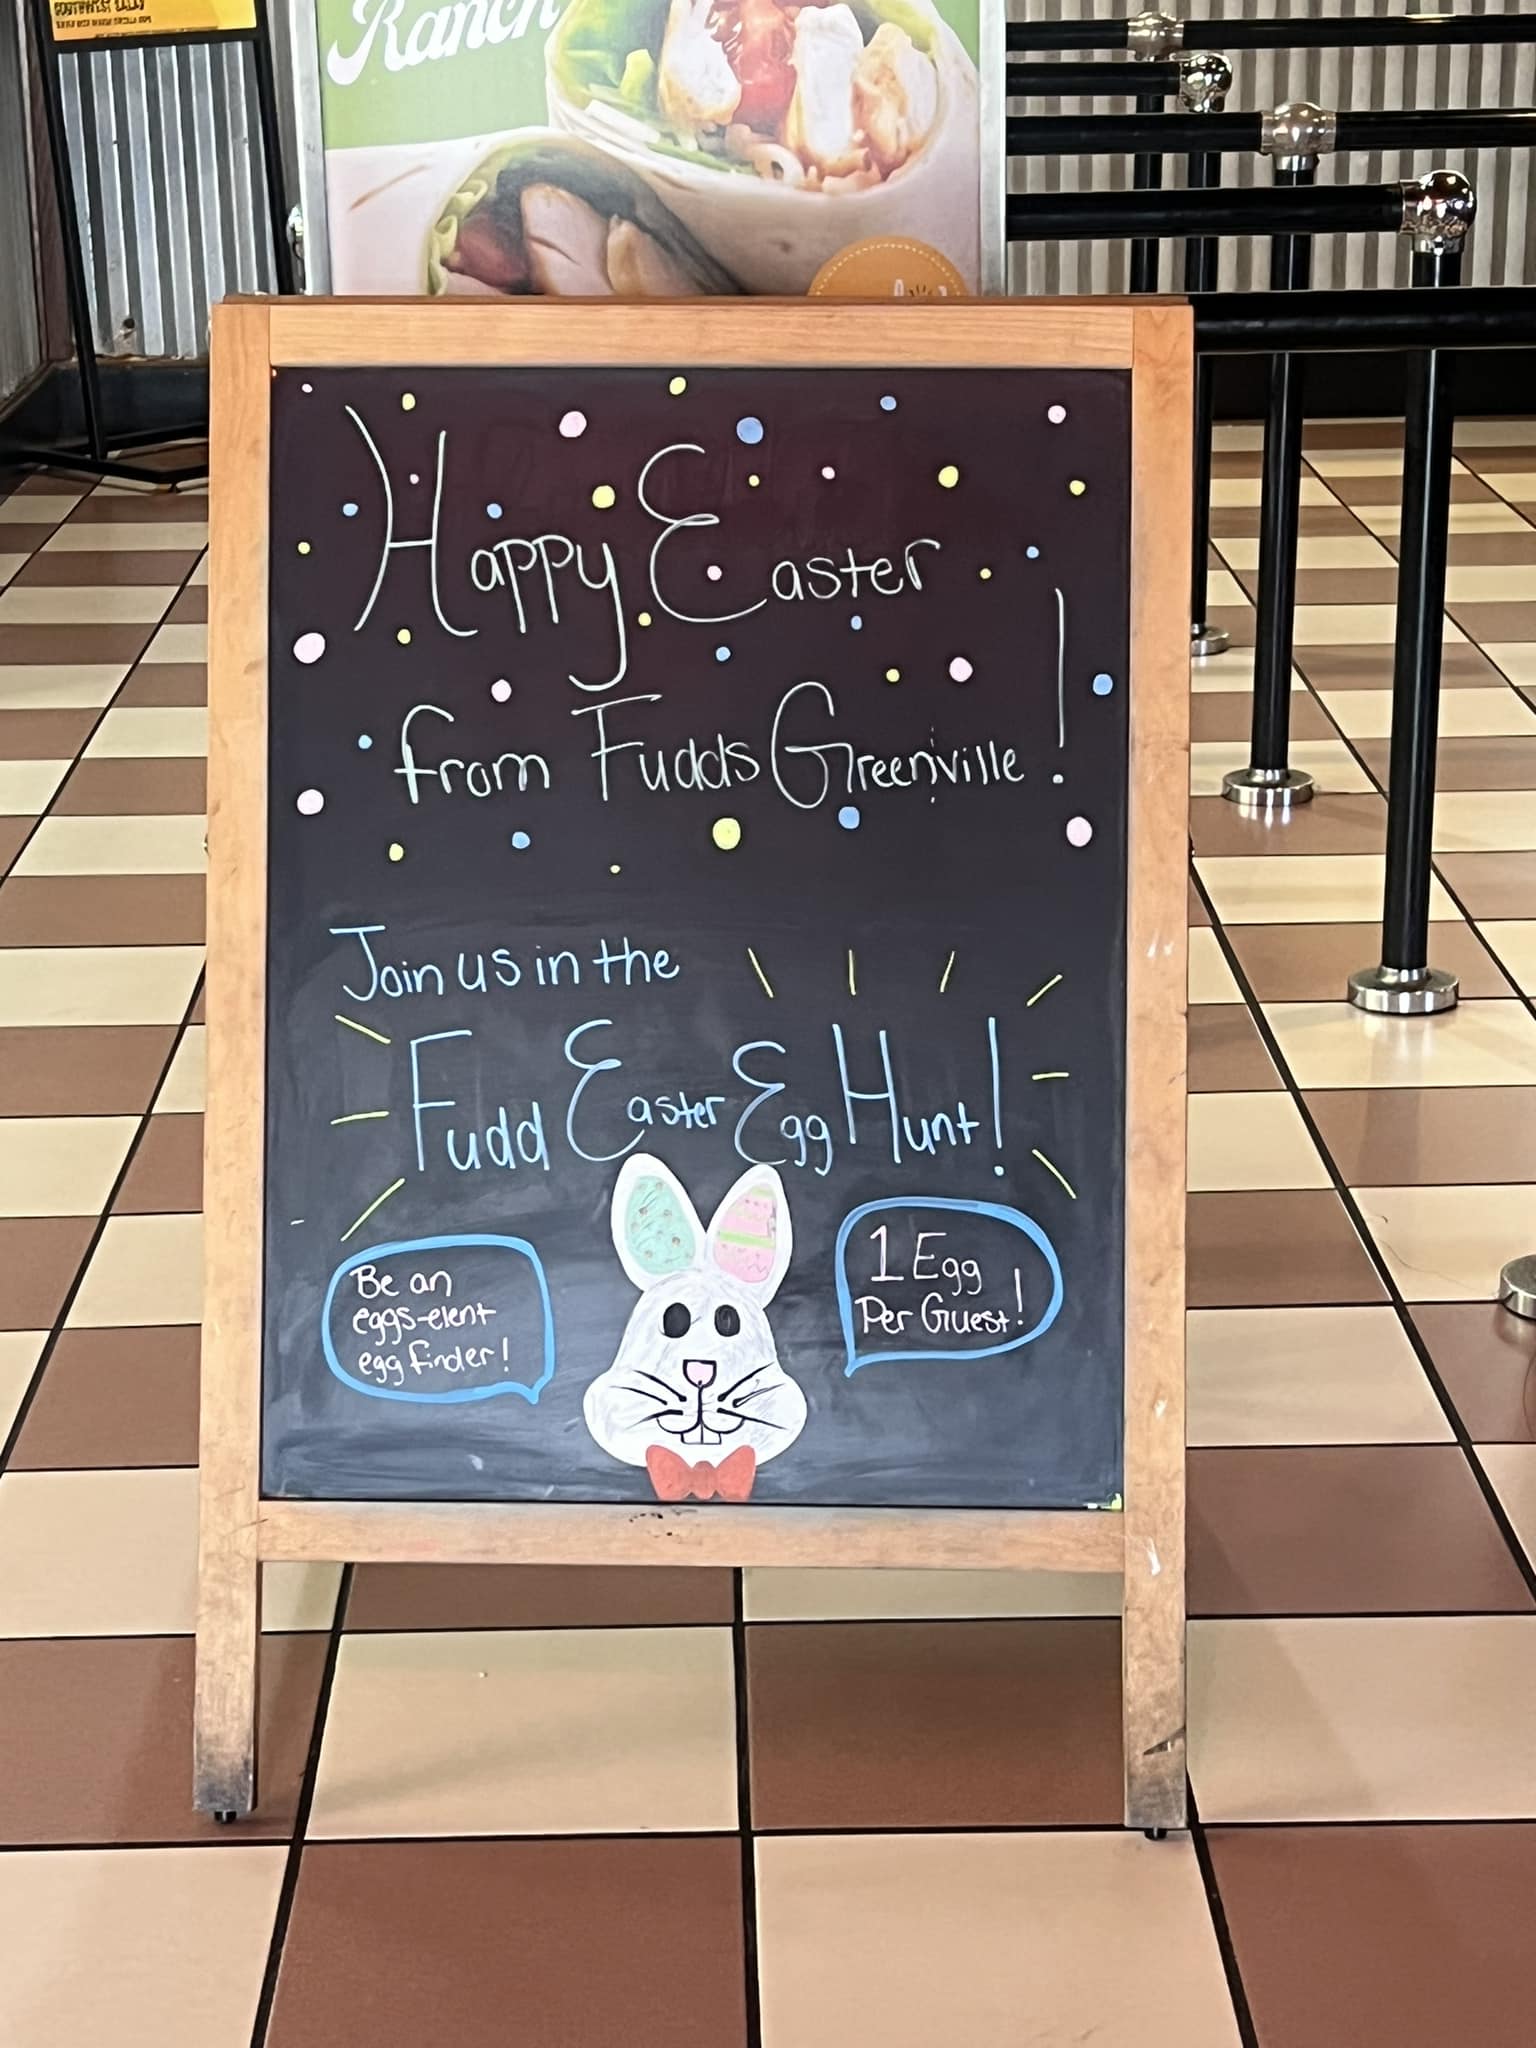 Ranch
Happy Easter
from Fudds Greenville!
Join us in the
Fudd Easter Egg Hunt!
Be an
eggs-elent
egg finder!
1 Egg
Per Guest!